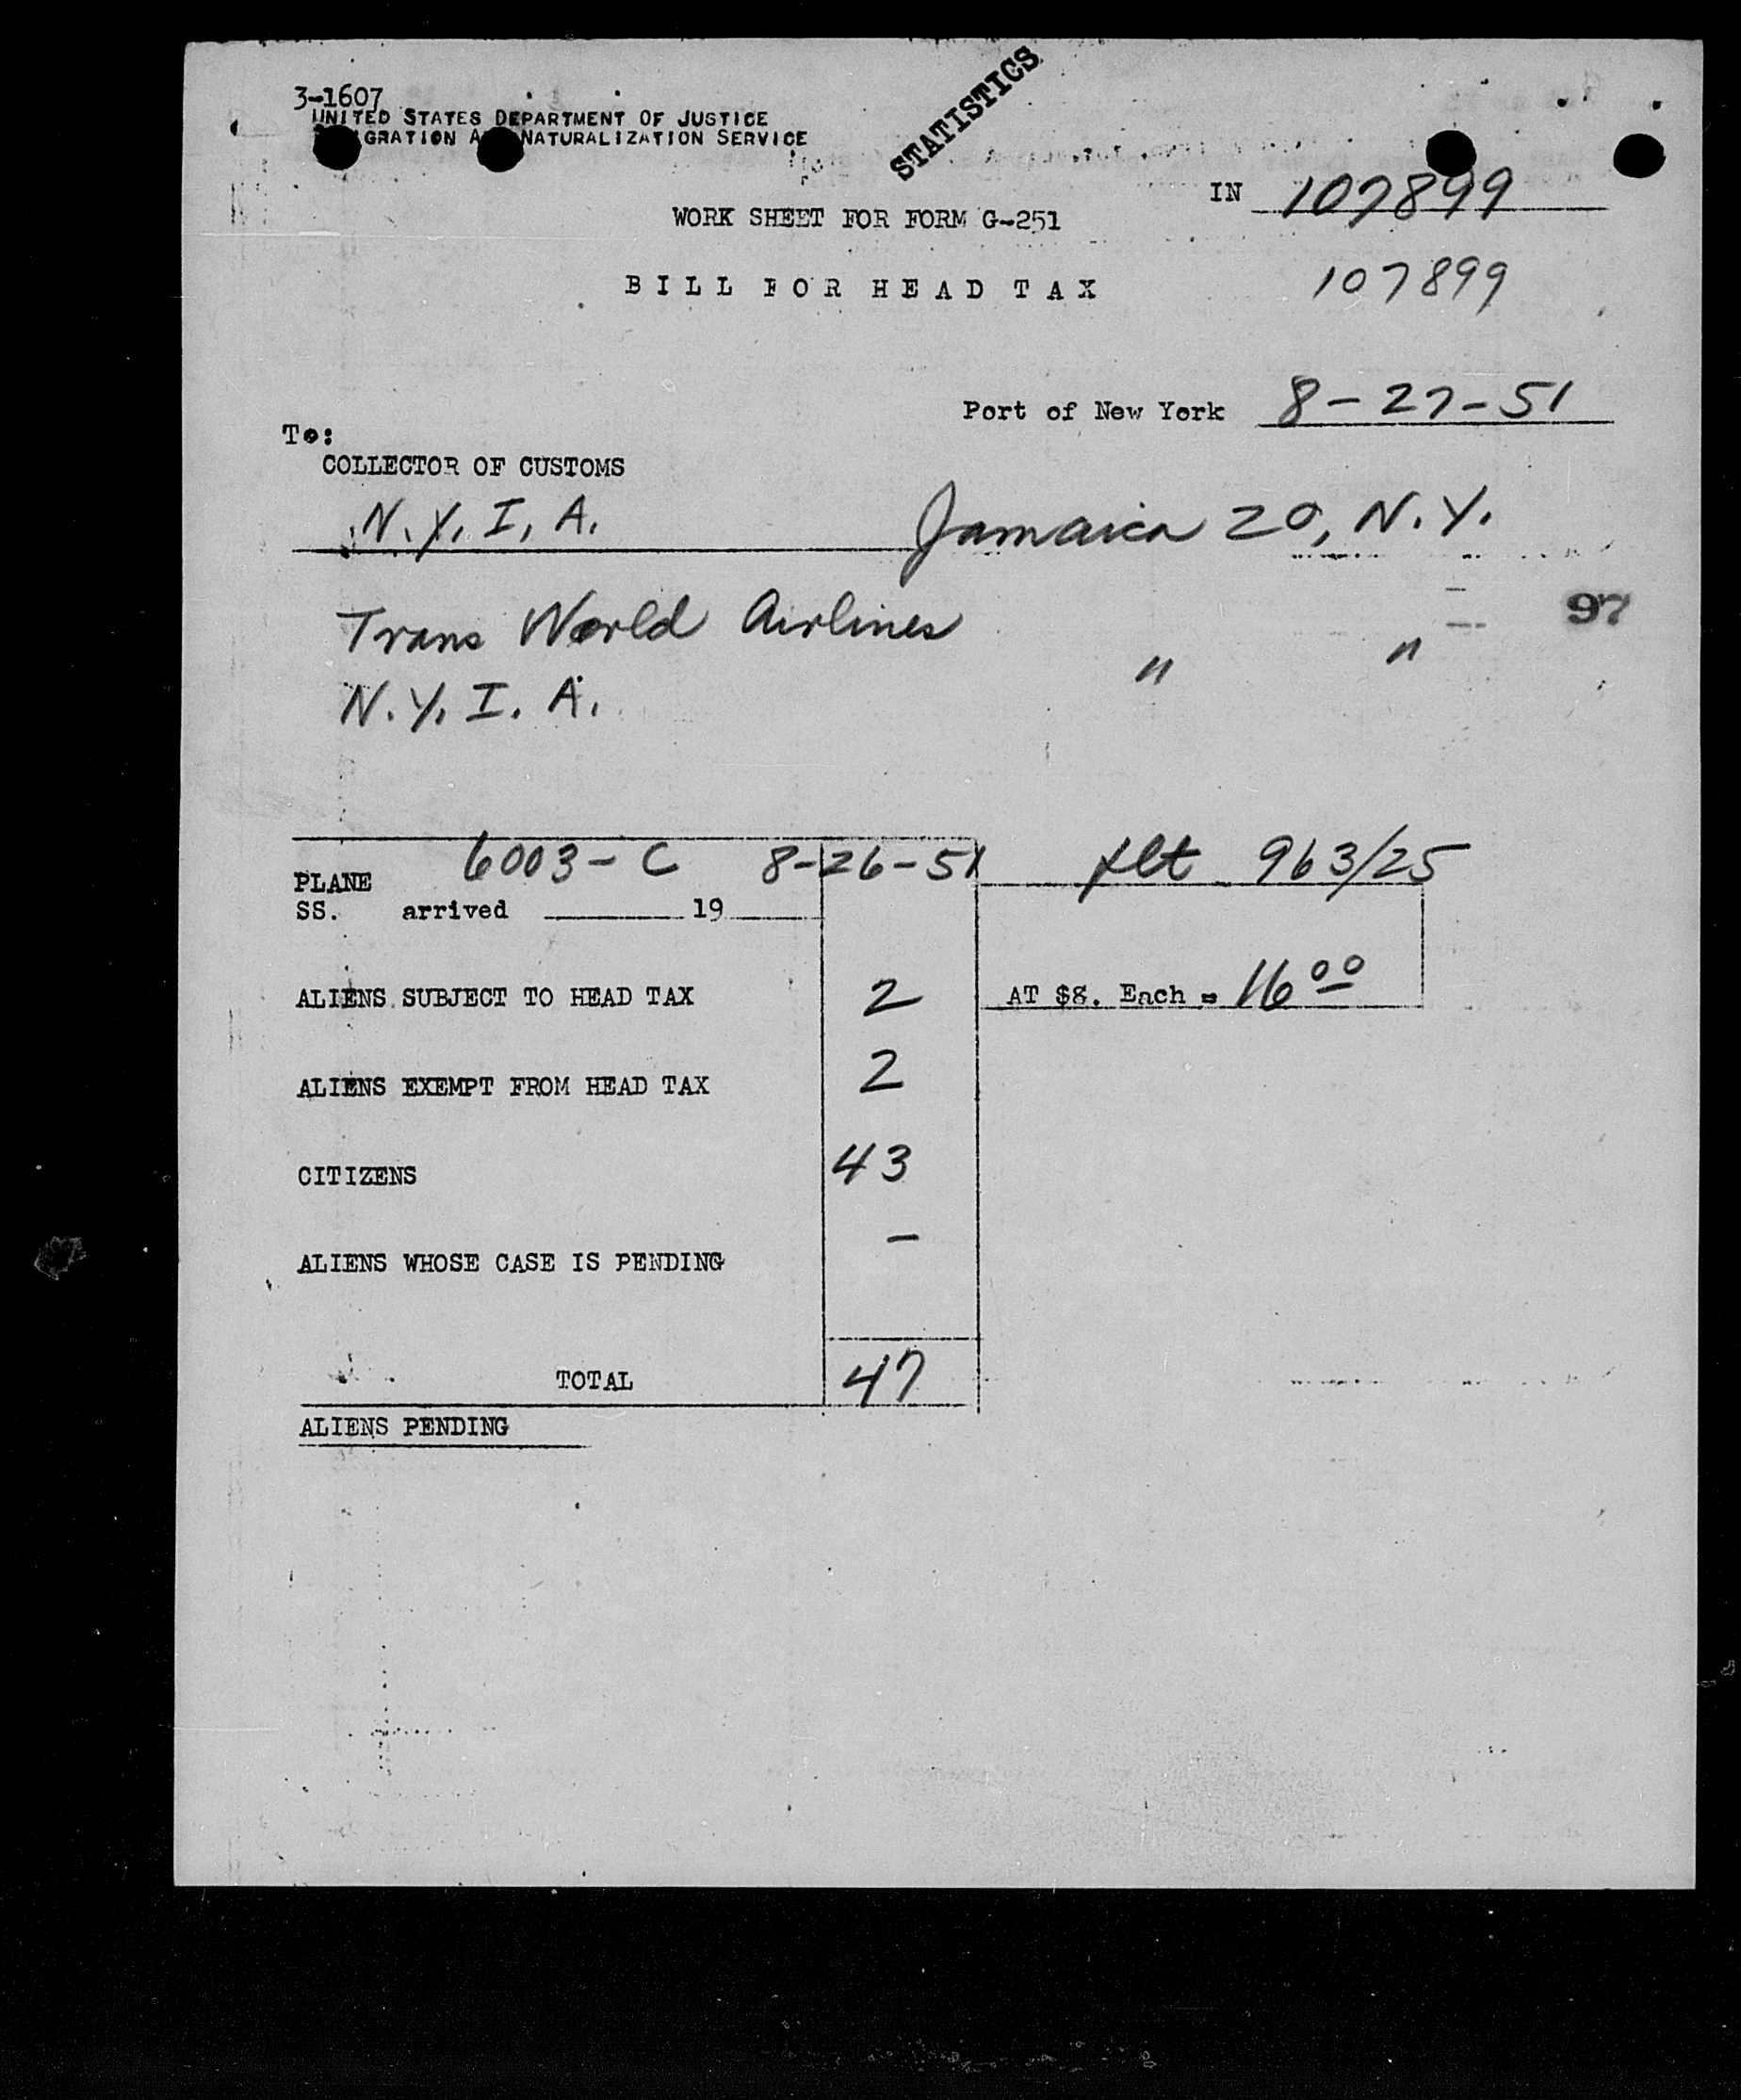 3-1607
UNITED STATES DEPARTMENT OF JUSTICE
GRATION A NATURALIZATION SERVICE
STATISTICS
IN 107899
WORK SHEET FOR FORM G-251
BILL FOR HEAD TAX
107899
Port of New York 8-27-51
To:
COLLECTOR OF CUSTOMS
N.Y.I.A. Jamaica 20, N.Y.
97
Trans World Airlines " "
N.Y.I.A.
6003-C 8-26-51 flt 963/25
PLANE
SS. arrived 19
ALIENS SUBJECT TO HEAD TAX 2 AT $8. Each = 16 00
ALIENS EXEMPT FROM HEAD TAX 2
CITIZENS 43
ALIENS WHOSE CASE IS PENDING –
TOTAL 47
ALIENS PENDING